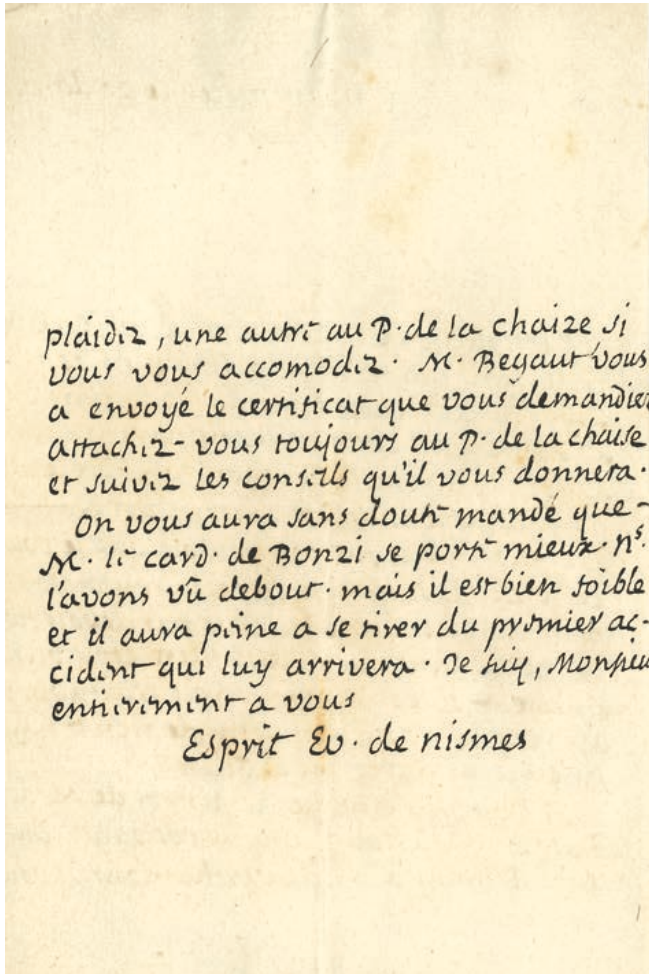 plaidez, une autre au P. de la chaize si
vous vous accomodez. M. Begaut vous
a envoyé le certificat que vous demandiez
attachez-vous toujours au P. de la chaise
et suivez les conseils qu'il vous donnera.
On vous aura sans doute mandé que
M. le card. de Bonzi se porte mieux. ns.
l'avons vû debout. mais il est bien foible
et il aura peine a se tirer du premier ac-
cident qui luy arrivera. Je suis, Monsieu
entierement a vous
Esprit Ev. de nismes